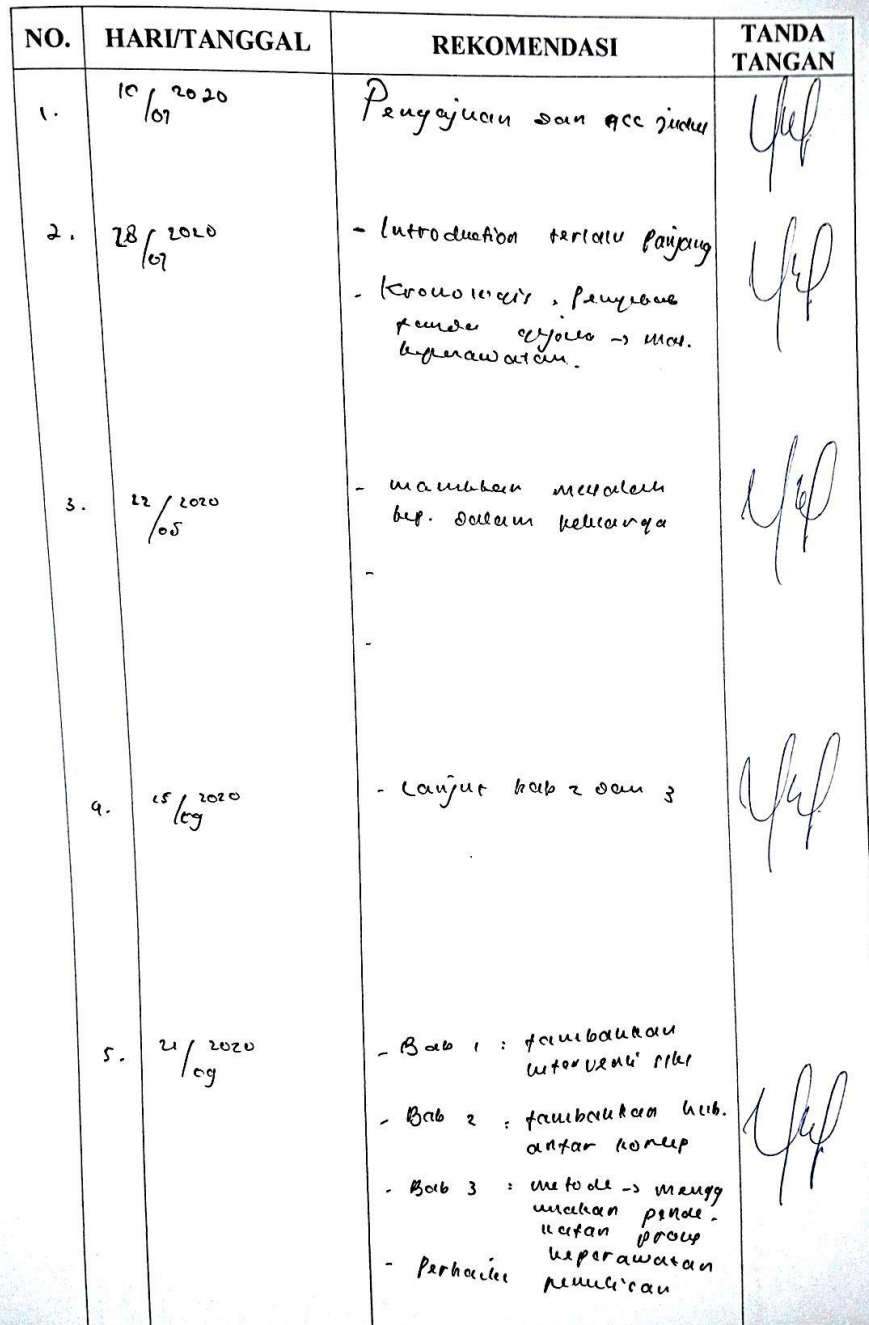 NO. HARI/TANGGAL REKOMENDASI TANDA TANGAN
1. 10/07 2020 Pengajuan dan acc judul
2. 28/07 2020 - Introduction terlalu panjang
- Kronologis, Penyebab
tanda gejala -> mas.
keperawatan.
3. 22/08 2020 - masalah
kep. dalam keluarga
-
-
4. 15/09 2020 - Lanjut bab 2 dan 3
5. 21/09 2020 - Bab 1 : tambahkan
intervensi
- Bab 2 : tambahkan hub.
antar konsep
- Bab 3 : metode -> mengg
unakan pende-
katan proses
keperawatan
- Perbaiki penulisan